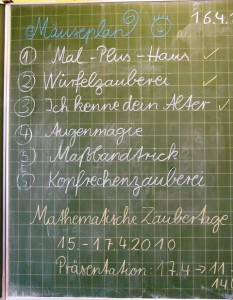 Mäuseplan 16.4.
① Mal-Plus-Haus ✓
② Würfelzauberei ✓
③ Ich kenne dein Alter ✓
④ Augenmagie
⑤ Maßbandtrick
⑤ Kopfrechenzauberei
Mathematische Zaubertage
15.-17.4.2010
Präsentation: 17.4 → 11